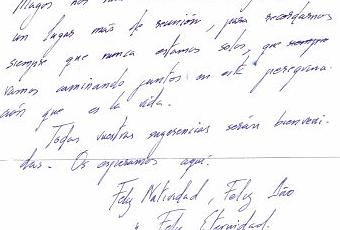 Magos nos
un lugar más de reunión, para recordarnos
siempre que nunca estamos solos, que siempre
vamos caminando juntos en esta peregrina-
ción que es la vida.
Todas vuestras sugerencias serán bienveni-
das. Os esperamos aquí.
Feliz Natividad, Feliz Año
y Feliz Eternidad.